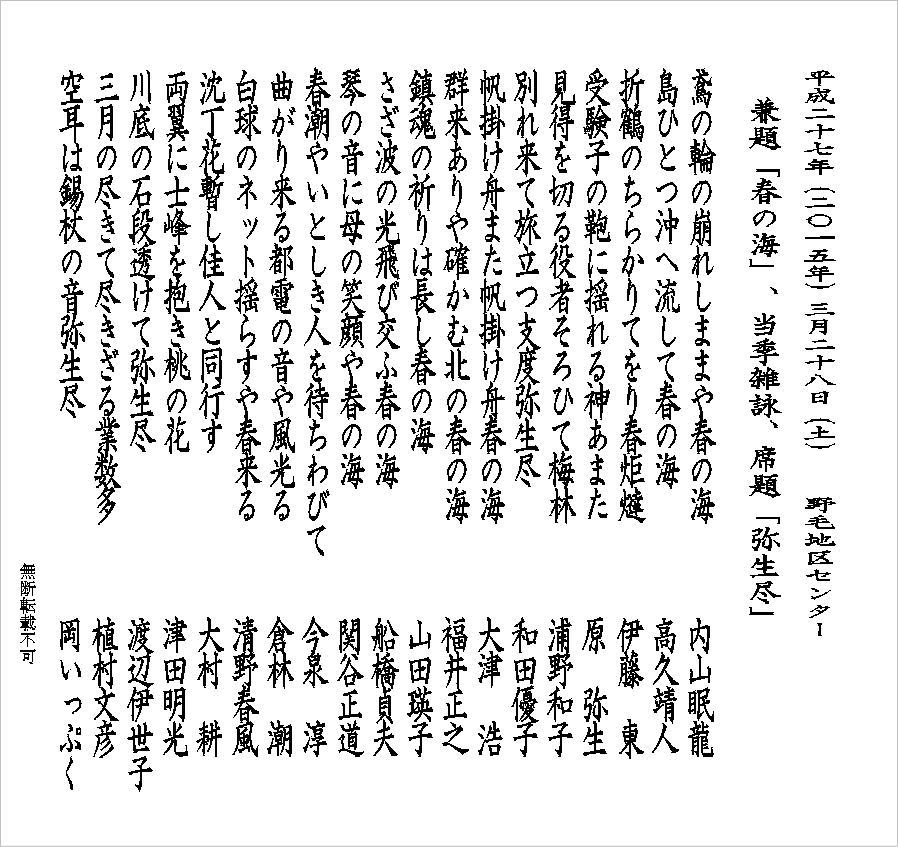 平成二十七年（二〇一五年）三月二十八日（土）　野毛地区センター
兼題「春の海」、当季雑詠、席題「弥生尽」
鳶の輪の崩れしままや春の海　内山眠龍
島ひとつ沖へ流して春の海　高久靖人
折鶴のちらかりてをり春炬燵　伊藤　東
受験子の鞄に揺れる神あまた　原　弥生
見得を切る役者そろひて梅林　浦野和子
別れ来て旅立つ支度弥生尽　和田優子
帆掛け舟また帆掛け舟春の海　大津　浩
群来ありや確かむ北の春の海　福井正之
鎮魂の祈りは長し春の海　山田瑛子
さざ波の光飛び交ふ春の海　船橋貞夫
琴の音に母の笑顔や春の海　関谷正道
春潮やいとしき人を待ちわびて　今泉　淳
曲がり来る都電の音や風光る　倉林　潮
白球のネット揺らすや春来る　清野春風
沈丁花暫し佳人と同行す　大村　耕
両翼に士峰を抱き桃の花　津田明光
川底の石段透けて弥生尽　渡辺伊世子
三月の尽きて尽きざる業数多　植村文彦
空耳は錫杖の音弥生尽　岡いっぷく
無断転載不可